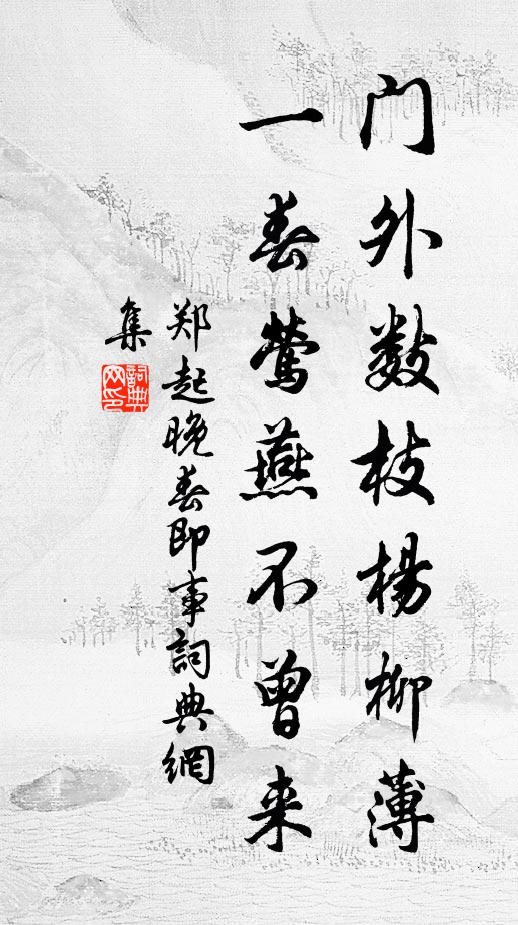 门外数枝杨柳薄
一春莺燕不曾来
郑起晚春即事詞典網
集
詞典網印